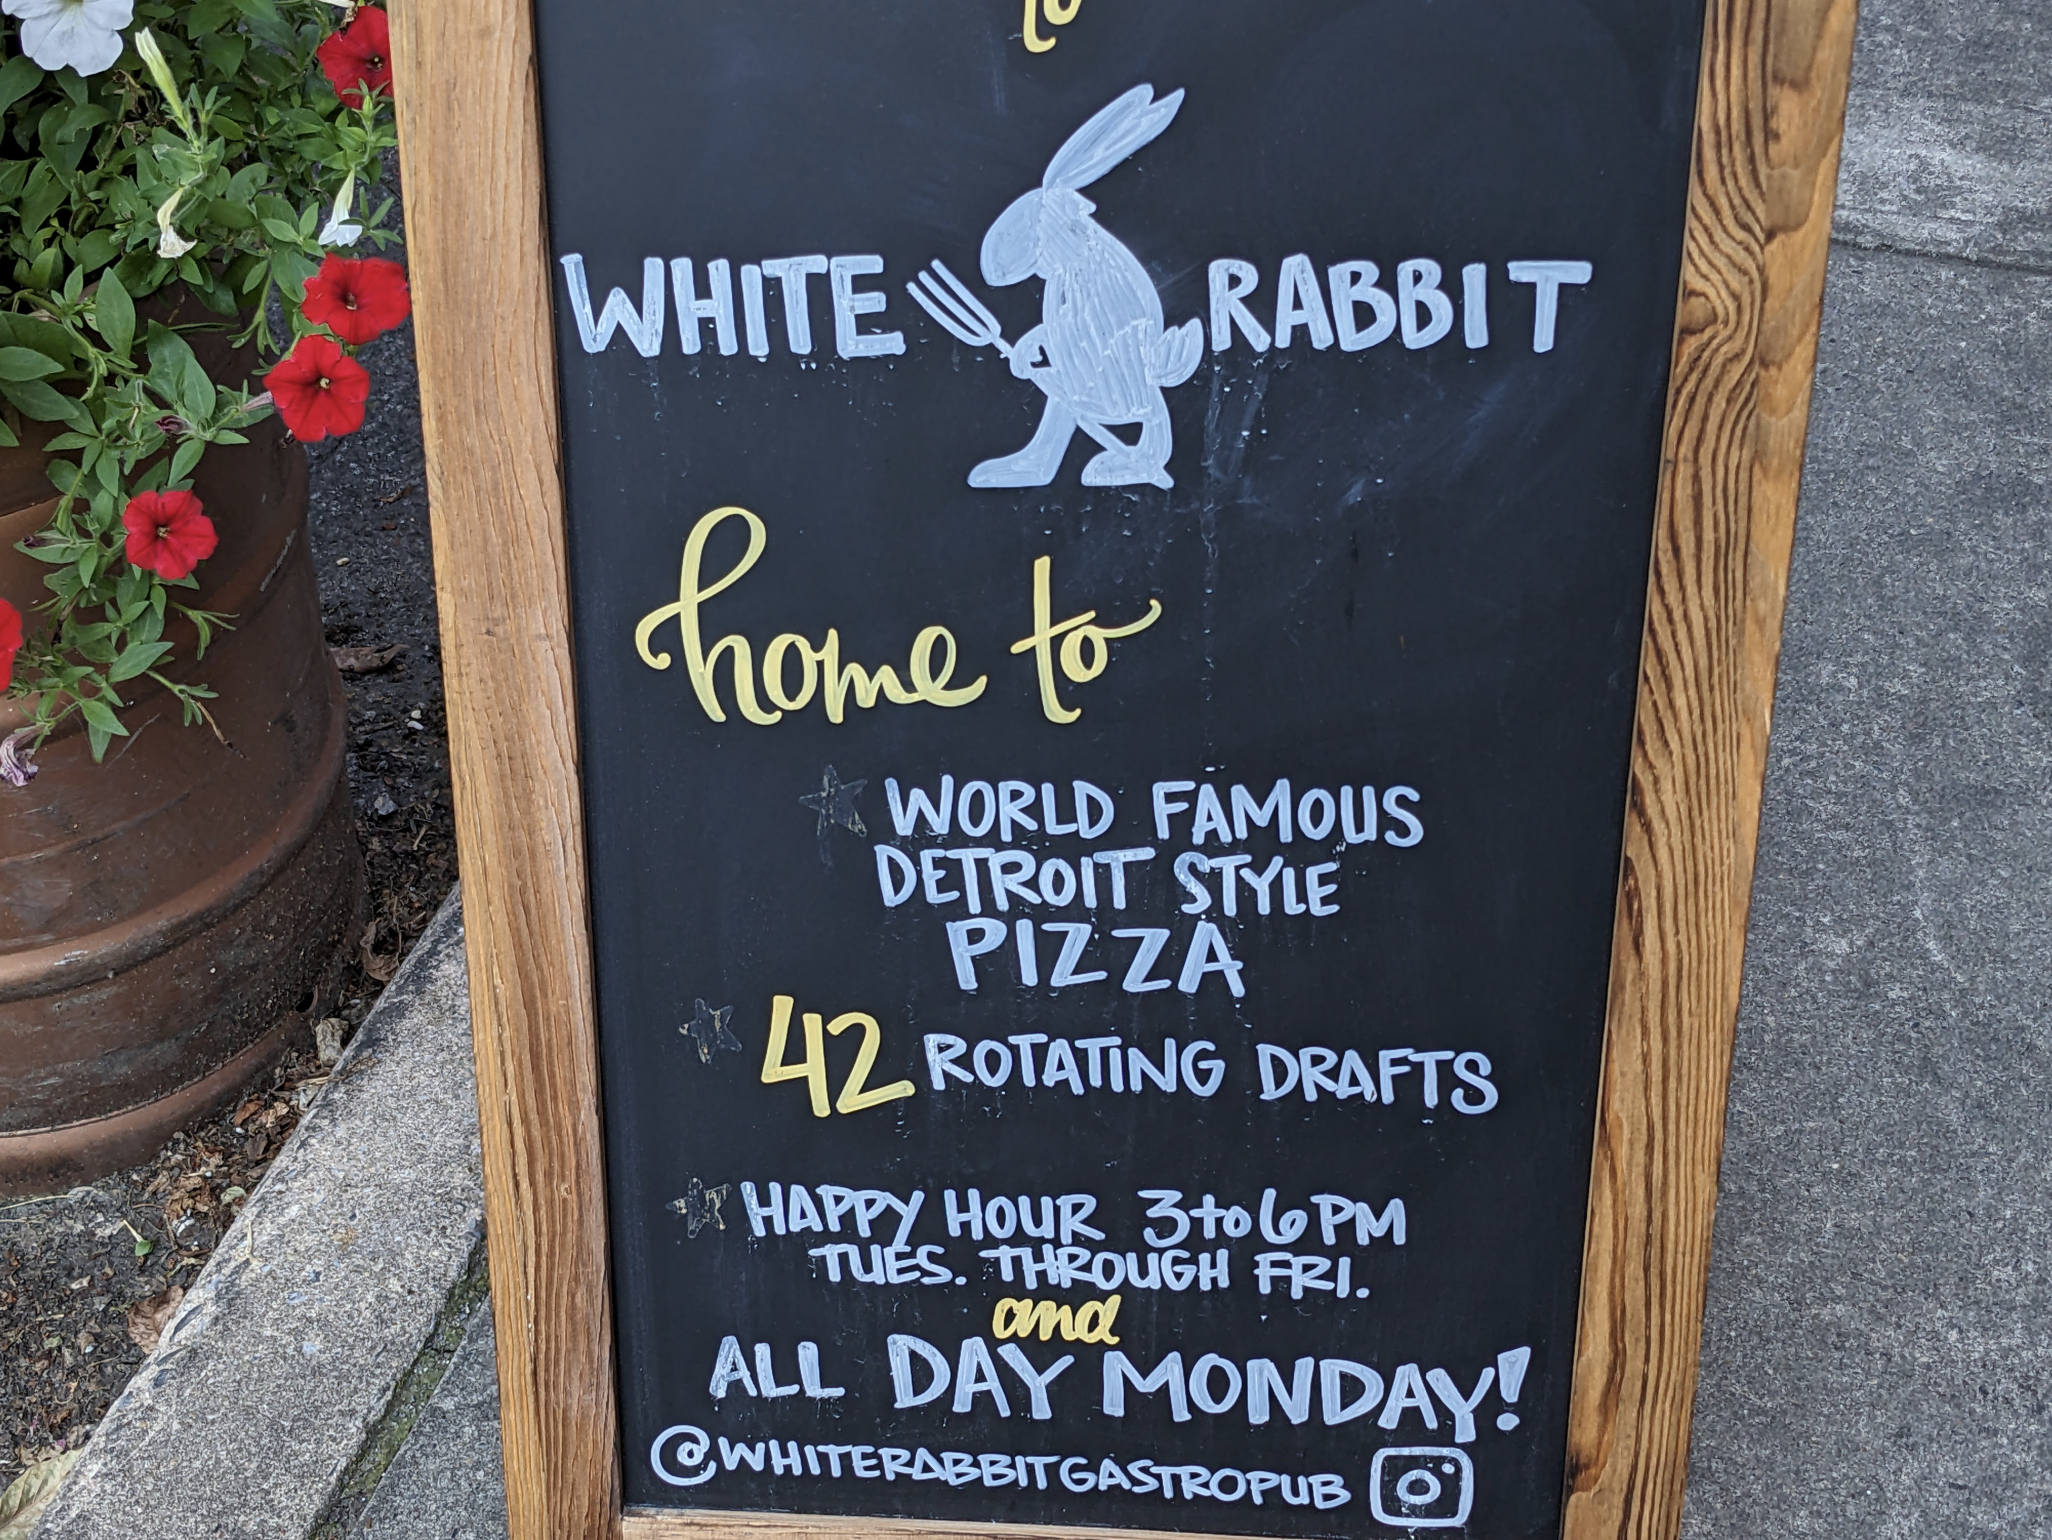 to
WHITE RABBIT
home to
WORLD FAMOUS
DETROIT STYLE
PIZZA
42 ROTATING DRAFTS
HAPPY HOUR 3to6PM
TUES. THROUGH FRI.
and
ALL DAY MONDAY!
@WHITERABBITGASTROPUB